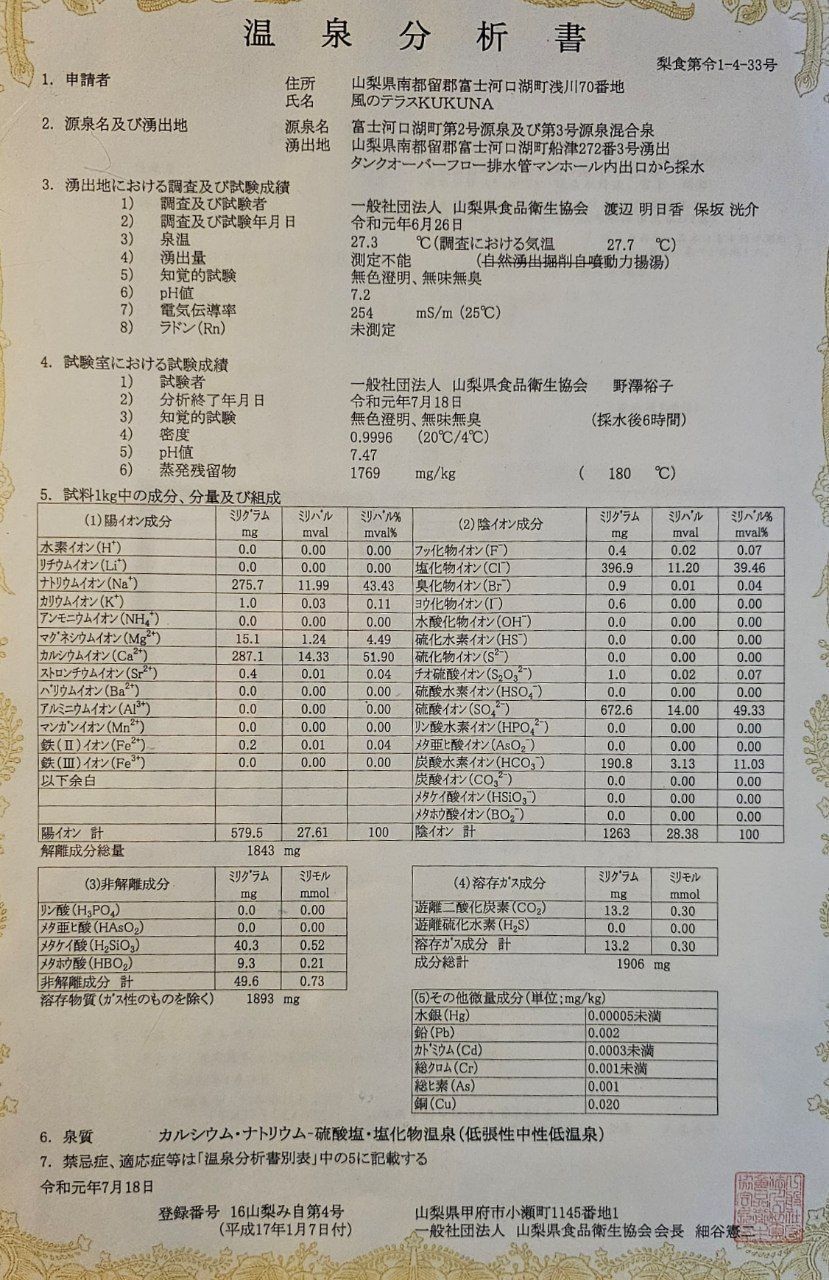 温泉分析書
梨食第令1-4-33号
1. 申請者 住所 山梨県南都留郡富士河口湖町浅川70番地
氏名 風のテラスKUKUNA
2. 源泉名及び湧出地 源泉名 富士河口湖町第2号源泉及び第3号源泉混合泉
湧出地 山梨県南都留郡富士河口湖町船津272番3号湧出
タンクオーバーフロー排水管マンホール内出口から採水
3. 湧出地における調査及び試験成績
1) 調査及び試験者 一般社団法人 山梨県食品衛生協会 渡辺 明日香 保坂 洸介
2) 調査及び試験年月日 令和元年6月26日
3) 泉温 27.3 ℃(調査における気温 27.7 ℃)
4) 湧出量 測定不能 (自然湧出掘削自噴動力揚湯)
5) 知覚的試験 無色澄明、無味無臭
6) pH値 7.2
7) 電気伝導率 254 mS/m (25℃)
8) ラドン(Rn) 未測定
4. 試験室における試験成績
1) 試験者 一般社団法人 山梨県食品衛生協会 野澤裕子
2) 分析終了年月日 令和元年7月18日
3) 知覚的試験 無色澄明、無味無臭 (採水後6時間)
4) 密度 0.9996 (20℃/4℃)
5) pH値 7.47
6) 蒸発残留物 1769 mg/kg ( 180 ℃)
5. 試料1kg中の成分、分量及び組成
(1)陽イオン成分 ミリグラム mg ミリバル mval ミリバル% mval% (2)陰イオン成分 ミリグラム mg ミリバル mval ミリバル% mval%
水素イオン(H⁺) 0.0 0.00 0.00 フッ化物イオン(F⁻) 0.4 0.02 0.07
リチウムイオン(Li⁺) 0.0 0.00 0.00 塩化物イオン(Cl⁻) 396.9 11.20 39.46
ナトリウムイオン(Na⁺) 275.7 11.99 43.43 臭化物イオン(Br⁻) 0.9 0.01 0.04
カリウムイオン(K⁺) 1.0 0.03 0.11 ヨウ化物イオン(I⁻) 0.6 0.00 0.00
アンモニウムイオン(NH₄⁺) 0.0 0.00 0.00 水酸化物イオン(OH⁻) 0.0 0.00 0.00
マグネシウムイオン(Mg²⁺) 15.1 1.24 4.49 硫化水素イオン(HS⁻) 0.0 0.00 0.00
カルシウムイオン(Ca²⁺) 287.1 14.33 51.90 硫化物イオン(S²⁻) 0.0 0.00 0.00
ストロンチウムイオン(Sr²⁺) 0.4 0.01 0.04 チオ硫酸イオン(S₂O₃²⁻) 1.0 0.02 0.07
バリウムイオン(Ba²⁺) 0.0 0.00 0.00 硫酸水素イオン(HSO₄⁻) 0.0 0.00 0.00
アルミニウムイオン(Al³⁺) 0.0 0.00 0.00 硫酸イオン(SO₄²⁻) 672.6 14.00 49.33
マンガンイオン(Mn²⁺) 0.0 0.00 0.00 リン酸水素イオン(HPO₄²⁻) 0.0 0.00 0.00
鉄(Ⅱ)イオン(Fe²⁺) 0.2 0.01 0.04 メタ亜ヒ酸イオン(AsO₂⁻) 0.0 0.00 0.00
鉄(Ⅲ)イオン(Fe³⁺) 0.0 0.00 0.00 炭酸水素イオン(HCO₃⁻) 190.8 3.13 11.03
以下余白 炭酸イオン(CO₃²⁻) 0.0 0.00 0.00
メタケイ酸イオン(HSiO₃⁻) 0.0 0.00 0.00
メタホウ酸イオン(BO₂⁻) 0.0 0.00 0.00
陽イオン 計 579.5 27.61 100 陰イオン 計 1263 28.38 100
解離成分総量 1843 mg
(3)非解離成分 ミリグラム mg ミリモル mmol
リン酸(H₃PO₄) 0.0 0.00
メタ亜ヒ酸(HAsO₂) 0.0 0.00
メタケイ酸(H₂SiO₃) 40.3 0.52
メタホウ酸(HBO₂) 9.3 0.21
非解離成分 計 49.6 0.73
溶存物質(ガス性のものを除く) 1893 mg
(4)溶存ガス成分 ミリグラム mg ミリモル mmol
遊離二酸化炭素(CO₂) 13.2 0.30
遊離硫化水素(H₂S) 0.0 0.00
溶存ガス成分 計 13.2 0.30
成分総計 1906 mg
(5)その他微量成分(単位;mg/kg)
水銀(Hg) 0.00005未満
鉛(Pb) 0.002
カドミウム(Cd) 0.0003未満
総クロム(Cr) 0.001未満
総ヒ素(As) 0.001
銅(Cu) 0.020
6. 泉質 カルシウム・ナトリウム-硫酸塩・塩化物温泉(低張性中性低温泉)
7. 禁忌症、適応症等は「温泉分析書別表」中の5に記載する
令和元年7月18日
登録番号 16山梨み自第4号 山梨県甲府市小瀬町1145番地1
(平成17年1月7日付) 一般社団法人 山梨県食品衛生協会会長 細谷憲二